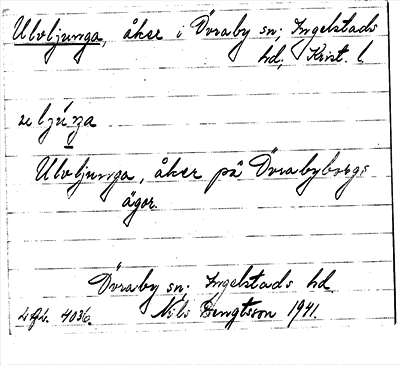 Ulvljunga, åker i Övraby sn; Ingelstads
hd; Krist. l.
Ulvljunga, åker på Övrabybygs
ägor.
Övraby sn; Ingelstads hd.
4036. Nils Bengtsson 1941.